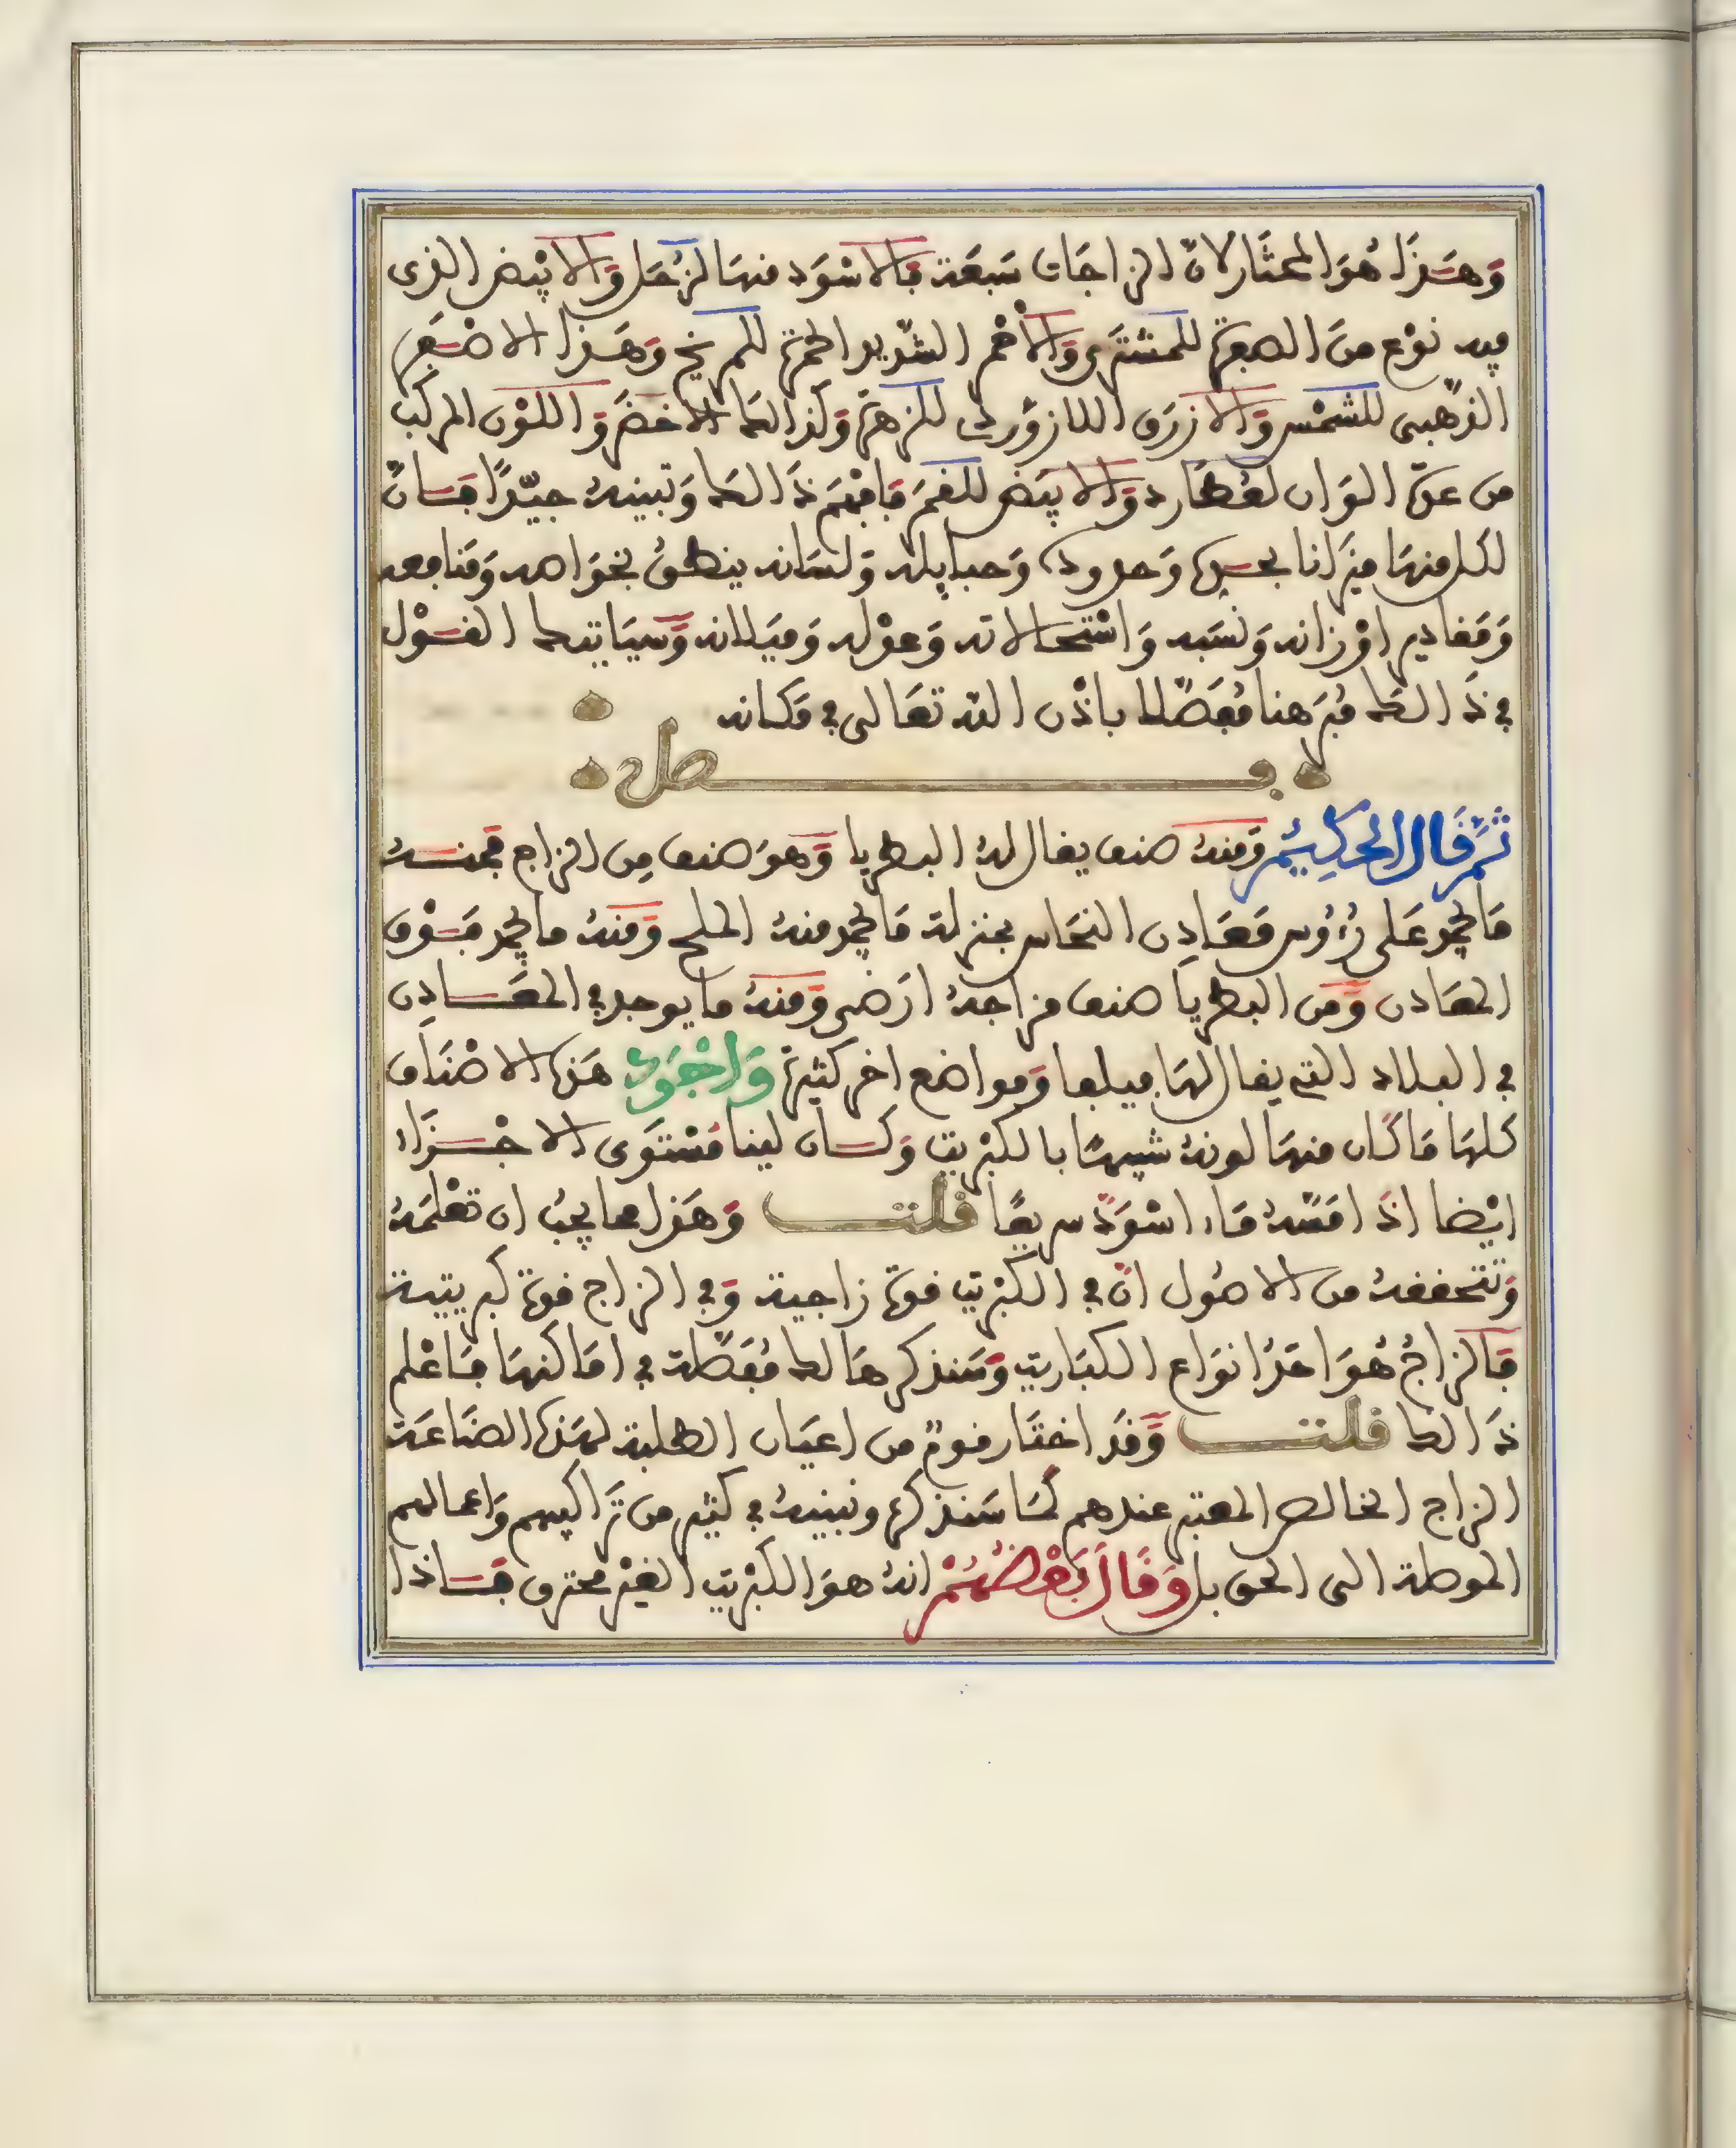 وَهَذَا هُوَ المختَار لانّ الزاجَات سَبعَة فَالاسْوَد منهَا لزُحَل وَالابْيَض الذى
فيه نوْع منَ الصفرة للمشترَى وَالأحْمر الشّديد الحمرة للمريخ وَهَذا الاصْفَر
الذّهبى للشمْس وَالازرَق اللازوَردى للزهرة وَكذالك الاخضَر وَاللوْن المركب
من عدّة الوَان لعُطَارد وَالابيَض للقمَر فَافهَم ذَالك وَتبينهُ جيّدًا فَانّ
لكل منهَا ميزَانا بحسبه وَحدوده وَحبايله وَلسَانه ينطقُ بخوَاصه وَمَنافعه
وَمَقادير اوْزانه وَنسَبه وَاسْتحَالاته وَعدْله وَميَلانه وَسَيَاتيك القَوْل
في ذَالك مُبَرهنا مُفَصّلا باذْن الله تعَالى في مَكانه
فصل
ثمَّ قَالَ الحَكِيمُ وَمنهُ صنف يقال لهُ البطريا وَهوَ صنف مِن الزاج فمنهُ
مَا يجمد عَلى رُءُوس مَعَادِن النحَاس بمنزلة مَا يجمد منهُ الملح وَمنهُ ما يجمد فَوْق
المعَادن وَمن البطريا صنف مزاجهُ ارَضى وَمنهُ ما يوجد في المعَادِن
في البلاد التي يقال لهَا ميلعا وَمواضع اخر كثيرة وَاجْوَد هَذه الاصْنَاف
كلهَا مَا كَان منهَا لونهُ شبيهًا بالكبْريت وَكان لينا مُسْتوَى الاجْزَاء
ايْضا اذَا مَسّهُ مَاء اسْوَدّ سريعًا قلت وَهَذا مما يجبُ ان تعْلمَهُ
وَتتحققهُ من الاصُول انّ في الكبْريت قوة زاجية وَفي الزاج قوة كبريتية
فَالزاجُ هُوَ احَدُ انوَاع الكبَاريت وَسَنذكرهَا لك مُفَصّلة في امَاكنهَا فَاعْلم
ذَالك قلت وَقَد اختَار قومٌ من اعيَان الطلبة لهَذه الصنَاعَة
الزاج الخالص المعتبر عندهم كمَا سَنذكره ونبينهُ في كثير من تَرَاكيبهم وَاعمالهم
الموصلة الى الحق بل وَقَالَ بَعْضُهُمْ انهُ هوَ الكبْريت الغيْر محترق فَاذا